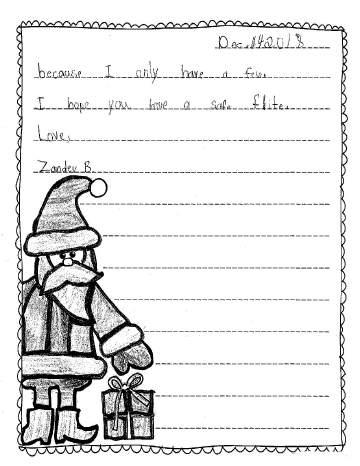 Dec.14 2018
because I only have a few.
I hope you have a safe flite.
Love,
Zander B.